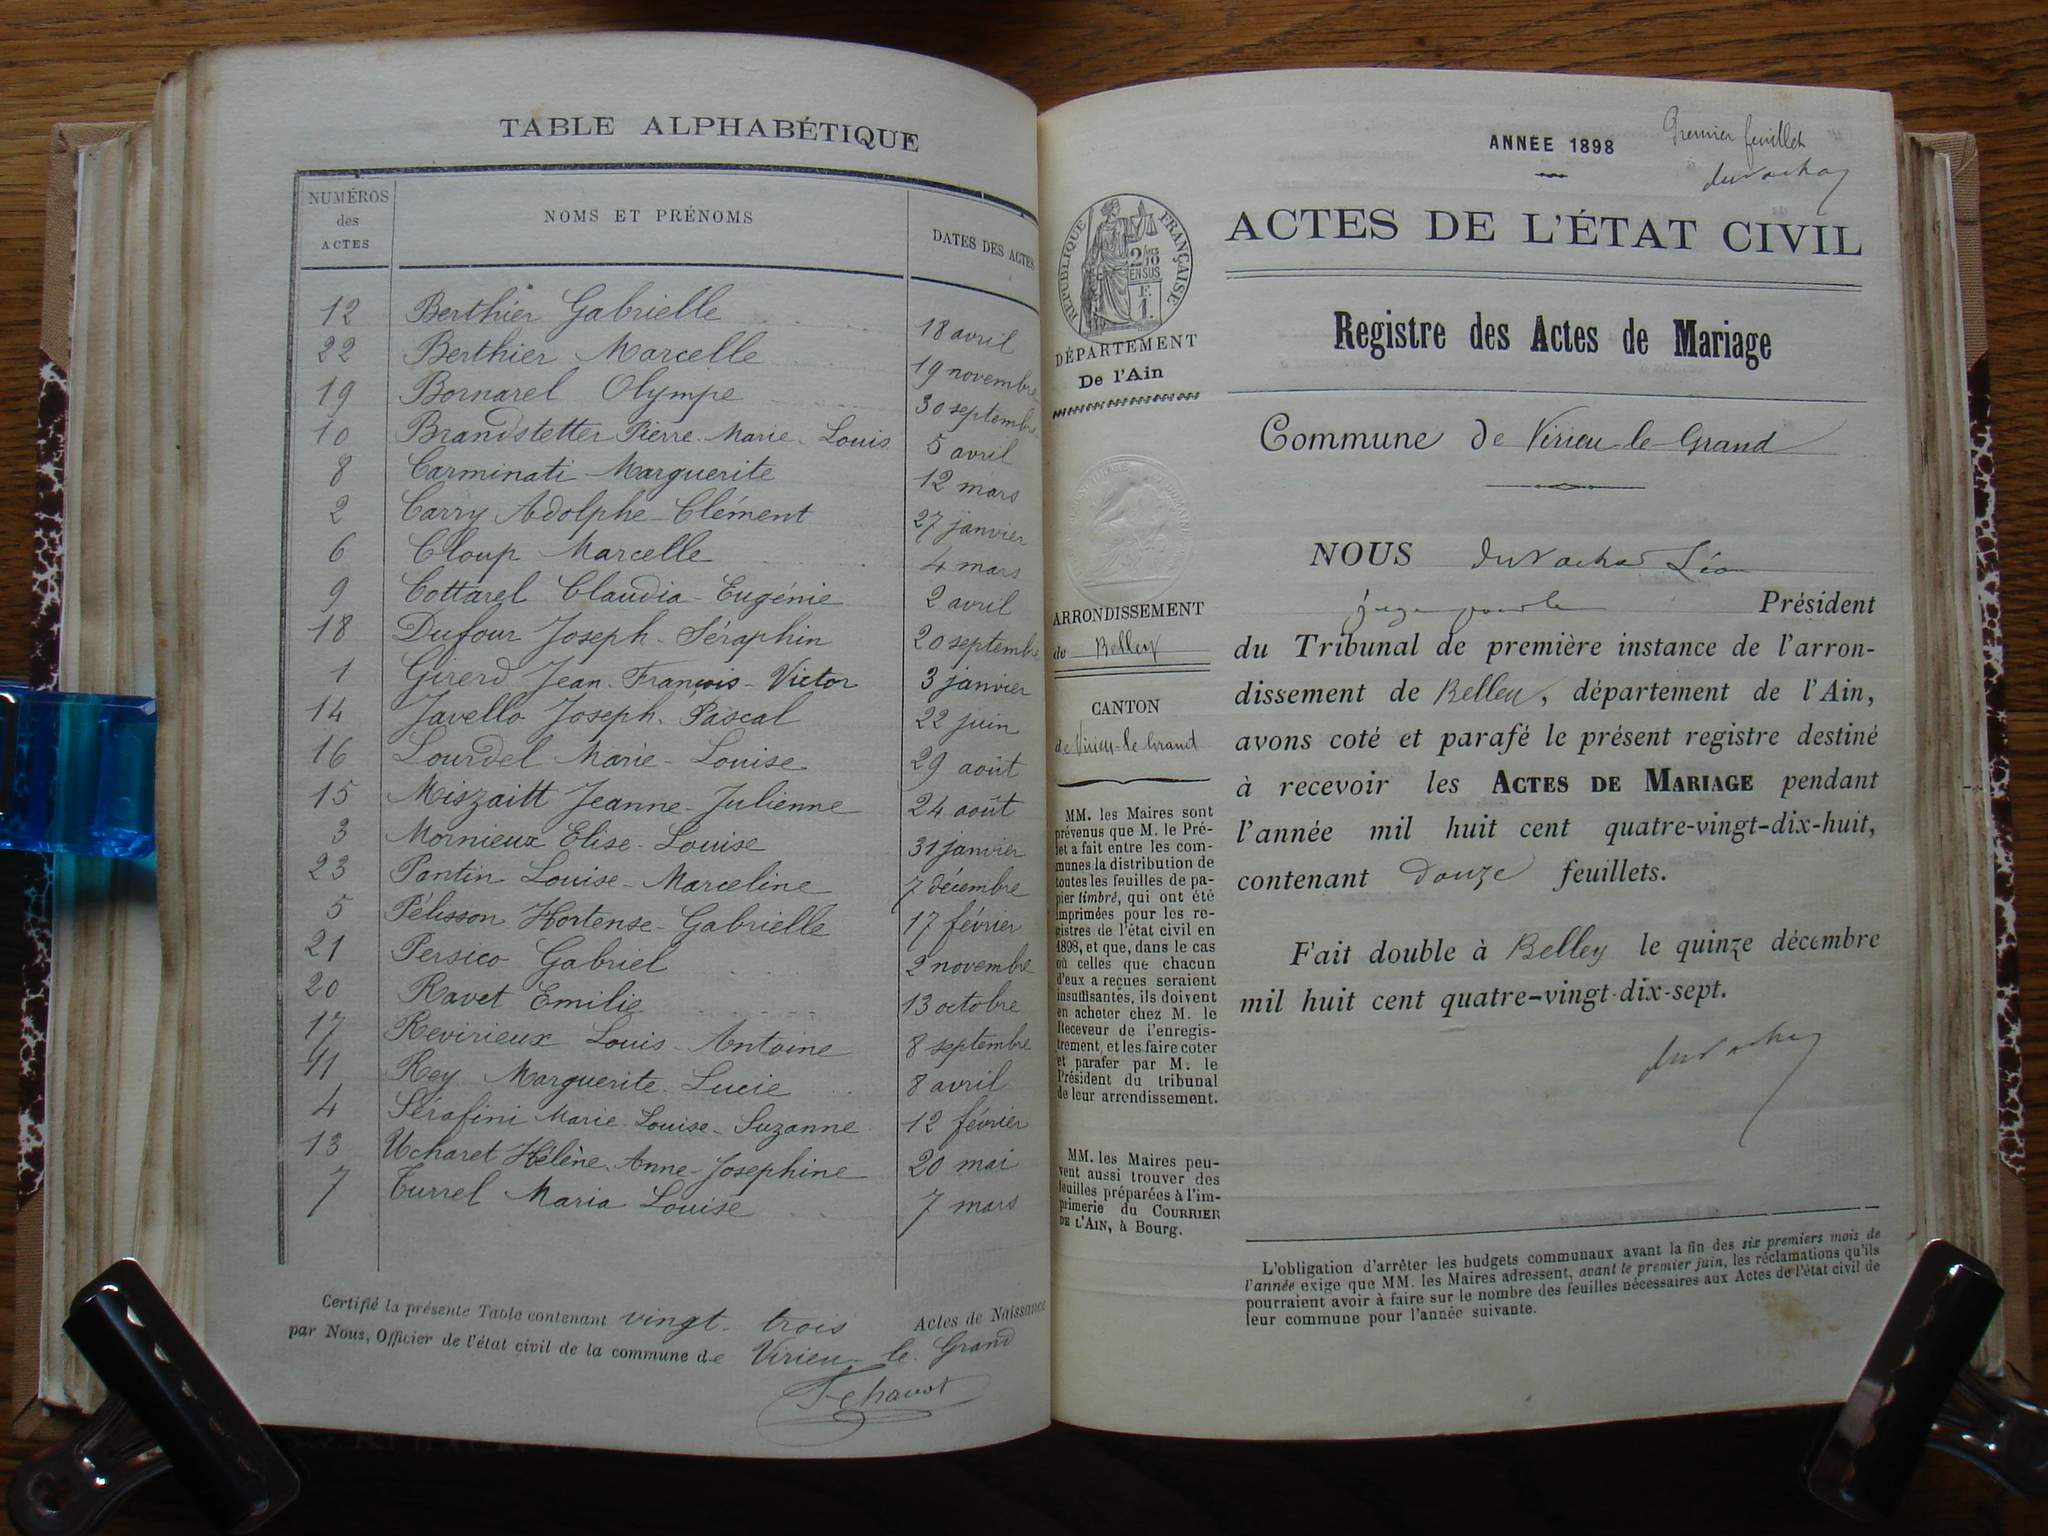 TABLE ALPHABÉTIQUE
NUMÉROS
des
ACTES
NOMS ET PRÉNOMS
DATES DES ACTES
12 Berthier Gabrielle 18 avril
22 Berthier Marcelle 19 novembre
19 Bornarel Olympe 30 septembre
10 Brandstetter Pierre-Marie-Louis 5 avril
8 Carminati Marguerite 12 mars
2 Carry Adolphe-Clément 27 janvier
6 Cloup Marcelle 4 mars
9 Cottarel Claudia-Eugénie 2 avril
18 Dufour Joseph-Séraphin 20 septembre
1 Girerd Jean-François-Victor 3 janvier
14 Javello Joseph-Pascal 22 juin
16 Lourdel Marie-Louise 29 août
15 Miszaitt Jeanne-Julienne 24 août
3 Mornieux Elise-Louise 31 janvier
23 Pantin Louise-Marceline 7 décembre
5 Pélisson Hortense-Gabrielle 17 février
21 Persico Gabriel 2 novembre
20 Ravet Emilie 13 octobre
17 Revirieux Louis-Antoine 8 septembre
11 Rey Marguerite-Lucie 8 avril
4 Sérafini Marie-Louise-Suzanne 12 février
13 Ucharet Hélène-Anne-Josephine 20 mai
7 Turrel Maria Louise 7 mars
Certifié la présente Table contenant vingt-trois Actes de Naissance
par Nous, Officier de l'état civil de la commune de Virieu-le-Grand
ANNÉE 1898
Premier feuillet
RÉPUBLIQUE FRANÇAISE
ACTES DE L'ÉTAT CIVIL
Registre des Actes de Mariage
DÉPARTEMENT
De l'Ain
Commune de Virieu-le-Grand
NOUS
Président
ARRONDISSEMENT
de Belley
du Tribunal de première instance de l'arron-
dissement de Belley, département de l'Ain,
avons coté et parafé le présent registre destiné
à recevoir les ACTES DE MARIAGE pendant
l'année mil huit cent quatre-vingt-dix-huit,
contenant douze feuillets.
CANTON
de Virieu-le-Grand
MM. les Maires sont
prévenus que M. le Pré-
fet a fait entre les com-
munes la distribution de
toutes les feuilles de pa-
pier timbré, qui ont été
imprimées pour les re-
gistres de l'état civil en
1898, et que, dans le cas
où celles que chacun
d'eux a reçues seraient
insuffisantes, ils doivent
en acheter chez M. le
Receveur de l'enregis-
trement, et les faire coter
et parafer par M. le
Président du tribunal
de leur arrondissement.
MM. les Maires peu-
vent aussi trouver des
feuilles préparées à l'im-
primerie du COURRIER
DE L'AIN, à Bourg.
Fait double à Belley le quinze décembre
mil huit cent quatre-vingt-dix-sept.
L'obligation d'arrêter les budgets communaux avant la fin des six premiers mois de
l'année exige que MM. les Maires adressent, avant le premier juin, les réclamations qu'ils
pourraient avoir à faire sur le nombre des feuilles nécessaires aux Actes de l'état civil de
leur commune pour l'année suivante.